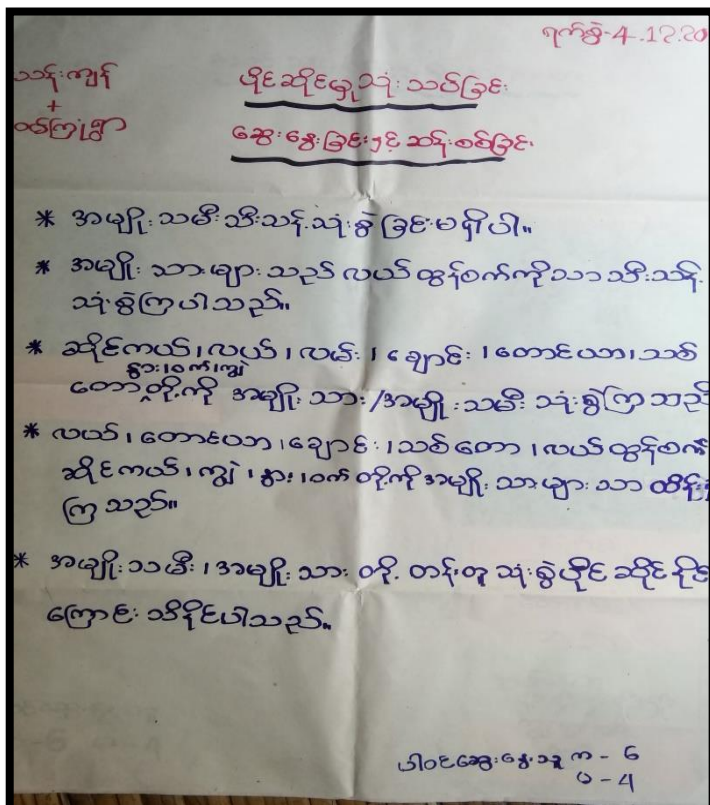 ရက်စွဲ-4.12.20
သန်းကျန်
+
ဝက်ကြုံရွာ
ပိုင်ဆိုင်မှုသုံးသပ်ခြင်း
ဆွေးနွေးခြင်းနှင့် ဆန်းစစ်ခြင်း
* အမျိုးသမီးသီးသန့်သုံးစွဲခြင်းမရှိပါ။
* အမျိုးသားများသည် လယ်ထွန်စက်ကိုသာသီးသန့်
သုံးစွဲကြပါသည်။
* ဆိုင်ကယ်၊လယ်၊လမ်း၊ချောင်း၊တောင်ယာ၊သစ်
နွား၊ဝက်၊ကျွဲ
တောတို့ကို အမျိုးသား/အမျိုးသမီး သုံးစွဲကြသည်
* လယ်၊တောင်ယာ၊ချောင်း၊သစ်တော၊လယ်ထွန်စက်
ဆိုင်ကယ်၊ကျွဲ၊နွား၊ဝက်တို့ကိုအမျိုးသားများသာ
ကြသည်။
* အမျိုးသမီး၊အမျိုးသားတို့ တန်းတူသုံးစွဲပိုင်ဆိုင်နိုင်
ကြောင်းသိနိုင်ပါသည်။
ပါဝင်ဆွေးနွေးသူ က - 6
ဝ - 4